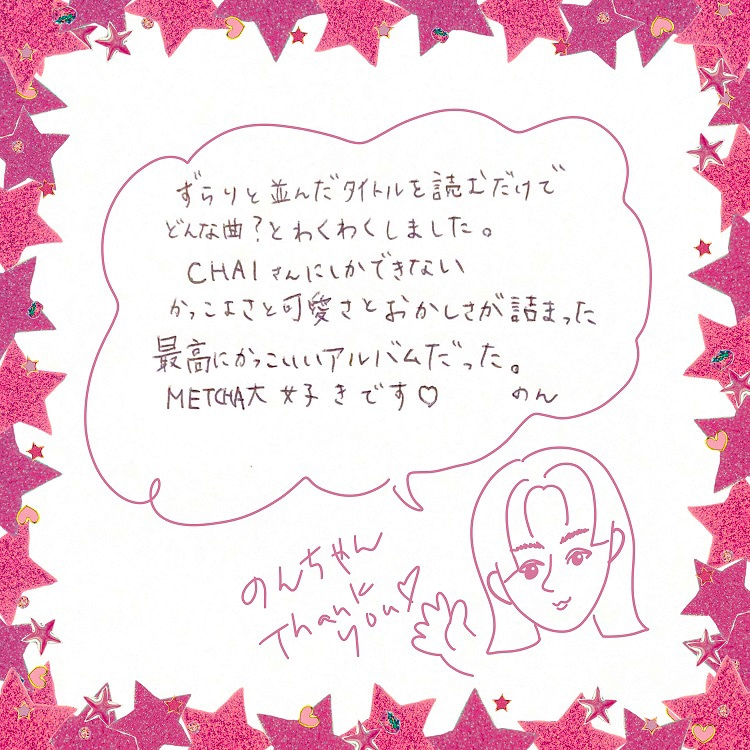 ずらりと並んだタイトルを読むだけで
どんな曲？とわくわくしました。
CHAIさんにしかできない
かっこよさと可愛さとおかしさが詰まった
最高にかっこいいアルバムだった。
METCHA大好きです♡ のん
のんちゃん
Thank
you♡